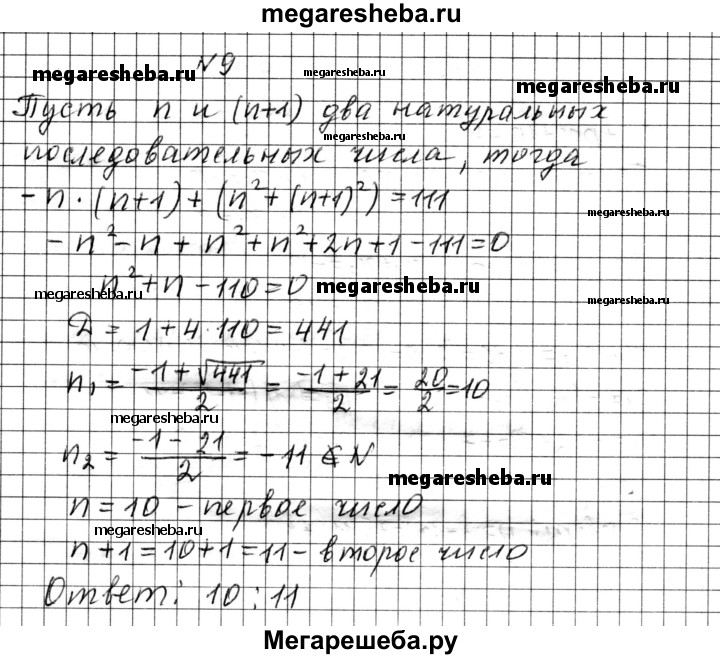 megaresheba.ru
№9
megaresheba.ru megaresheba.ru megaresheba.ru
Пусть n и (n+1) два натуральных
megaresheba.ru
последовательных числа, тогда
-n·(n+1)+(n²+(n+1)²)=111
megaresheba.ru
-n²-n+n²+n²+2n+1-111=0
n²+n-110=0
megaresheba.ru megaresheba.ru megaresheba.ru
Д=1+4·110=441
n₁=(-1+√441)/2=(-1+21)/2=20/2=10
megaresheba.ru
n₂=(-1-21)/2=-11∉N
megaresheba.ru
n=10-первое число
megaresheba.ru
n+1=10+1=11-второе число
Ответ: 10; 11
Мегарешеба.ру